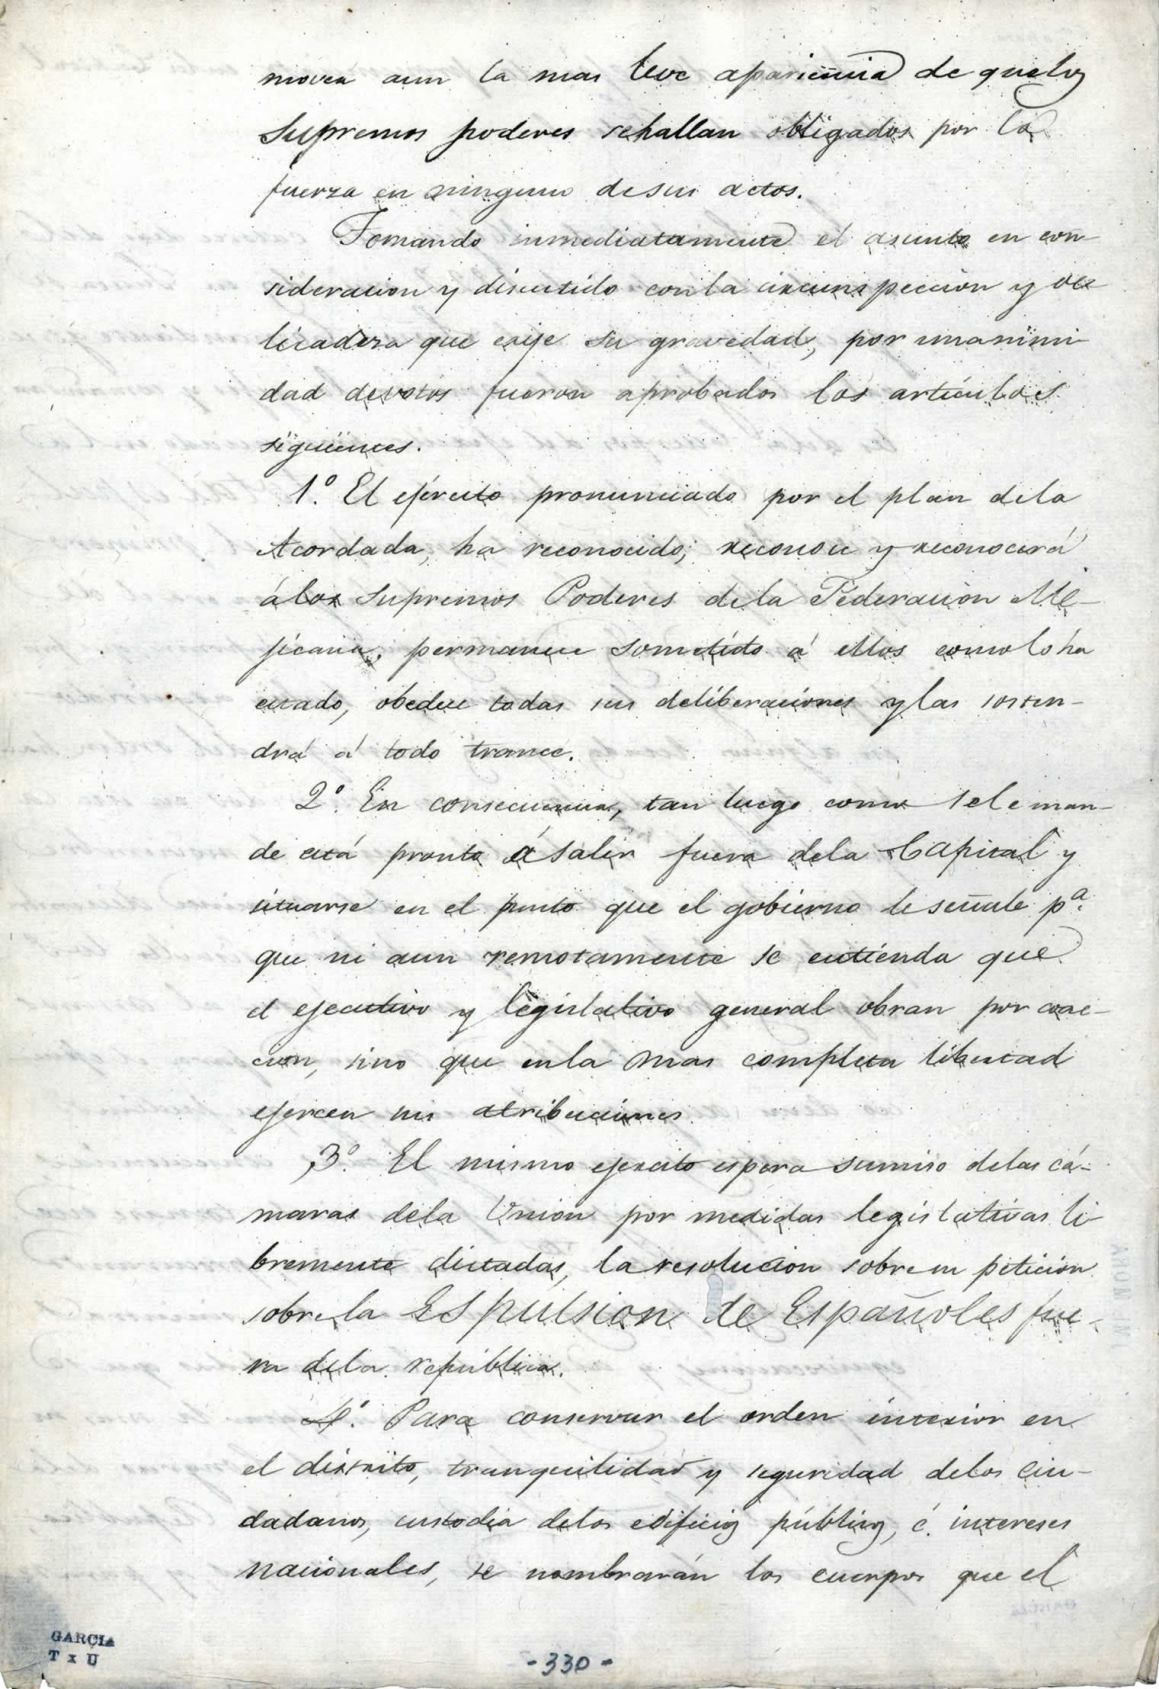 mova aun la mas leve apariencia de que los
Supremos poderes se hallan obligados por la
fuerza en ninguno de sus actos.
Tomando inmediatamente el asunto en con-
sideracion y discutido con la circunspeccion y de
licadeza que exije su gravedad, por unanimi
dad de votos fueron aprobados los artículos
siguientes.
1º. El ejército pronunciado por el plan de la
Acordada, ha reconocido, reconoce y reconocerá
á los Supremos Poderes de la Federacion Me-
jicana, permanece sometido á ellos como lo ha
estado, obedece todas sus deliberaciones y las sosten-
drá á todo trance.
2º. En consecuencia, tan luego como se le man-
de está pronto á salir fuera de la Capital y
situarse en el punto que el gobierno le señale pª.
que ni aun remotamente se entienda que
el ejecutivo y legislativo general obran por coac-
cion, sino que en la mas completa libertad
ejercen sus atribuciones.
3º. El mismo ejercito espera sumiso de las cá-
maras de la Union por medidas legislativas li
bremente dictadas, la resolucion sobre su peticion
sobre la Espulsion de Españoles fue-
ra de la república.
4º. Para conservar el orden interior en
el distrito, tranquilidad y seguridad de los ciu-
dadanos, custodia de los edificios públicos, é intereses
nacionales, se nombrarán los cuerpos que el
GARCIA
T x U
-330-